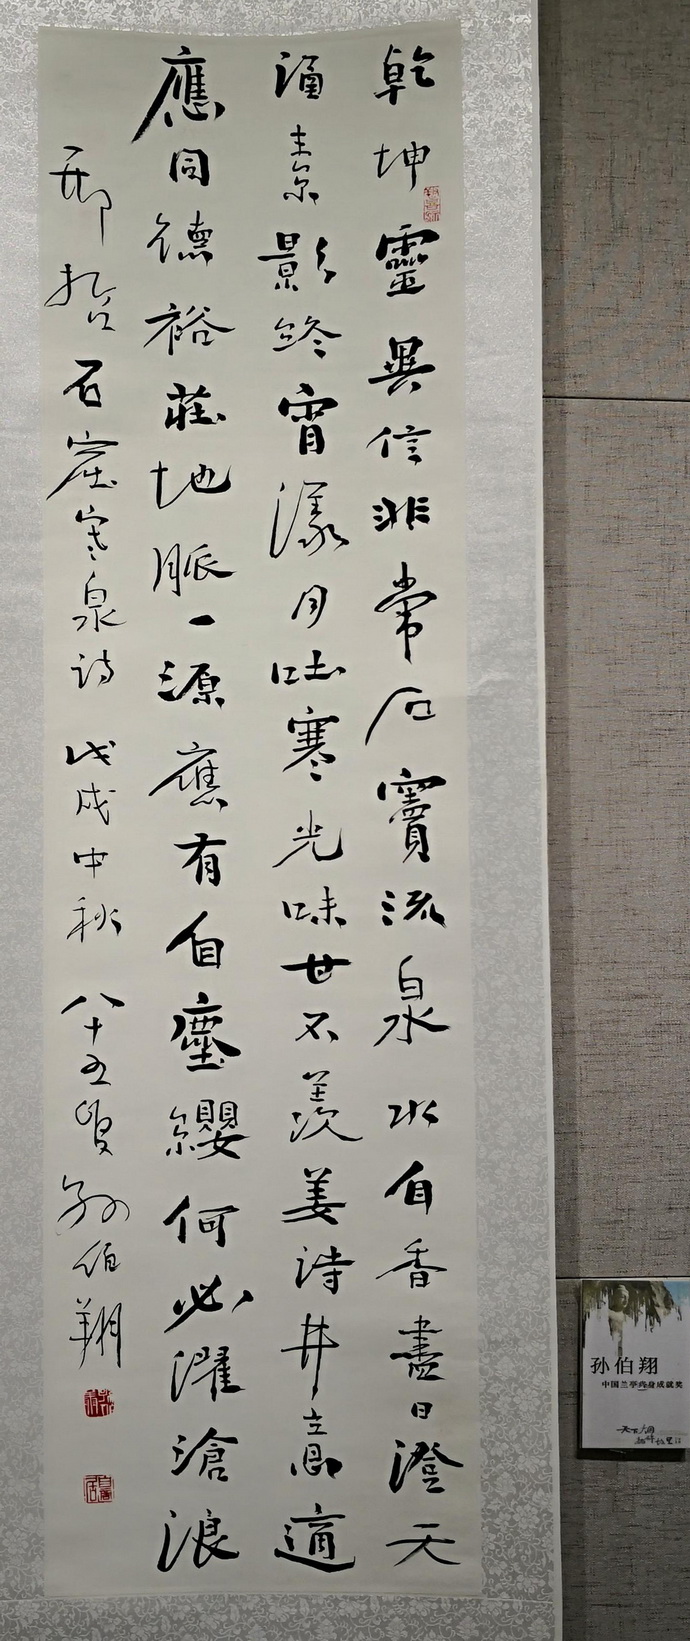 乾坤靈異信非常石竇流泉水自香盡日澄天
涵素影終宵漾月吐寒光味甘不羨姜詩井意適
應同德裕莊地脈一源應有自塵纓何必濯滄浪
邢哲石窟寒泉詩 戊戌中秋 八十五叟孫伯翔
孙伯翔
中国兰亭终身成就奖